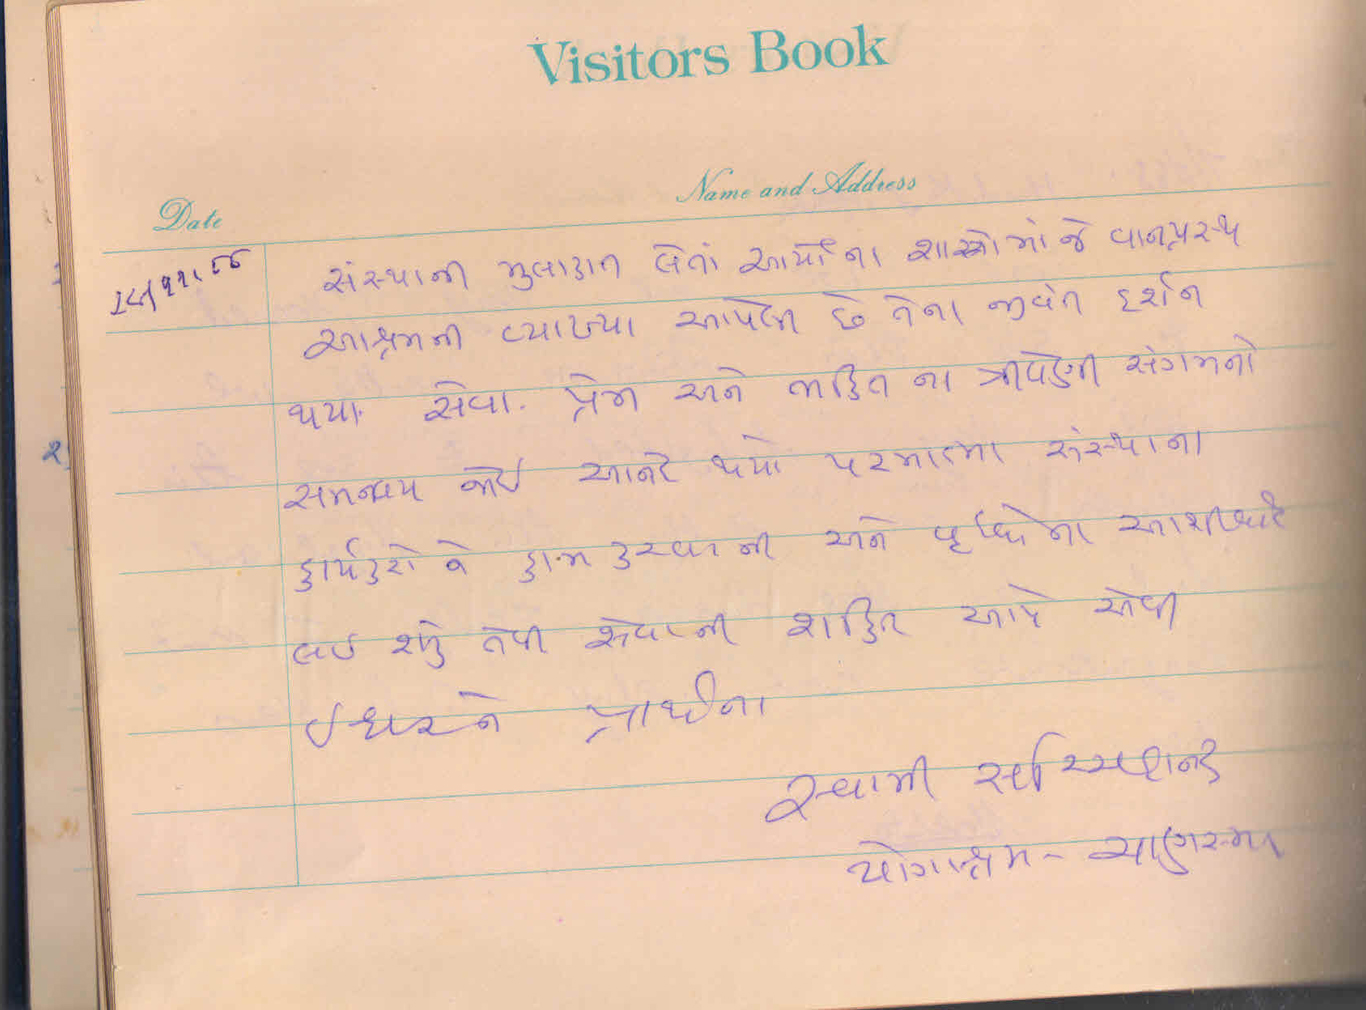 Visitors Book
Date Name and Address
સંસ્થાની મુલાકાત લેતાં આર્યોના શાસ્ત્રોમાં જે વાનપ્રસ્થ
આશ્રમની વ્યાખ્યા આપેલી છે તેના જીવંત દર્શન
થયા. સેવા. પ્રેમ અને ભક્તિ ના ત્રીવેણી સંગમનો
સમન્વય જોઈ આનંદ થયો પરમાત્મા સંસ્થાના
કાર્યકરો ને કામ કરવાની અને વૃધ્ધોના આશીર્વાદ
લઈ શકે તેવી સેવાની શક્તિ આપે એવી
ઈશ્વરને પ્રાર્થના
સ્વામી
યોગાશ્રમ - ચાણસ્મા